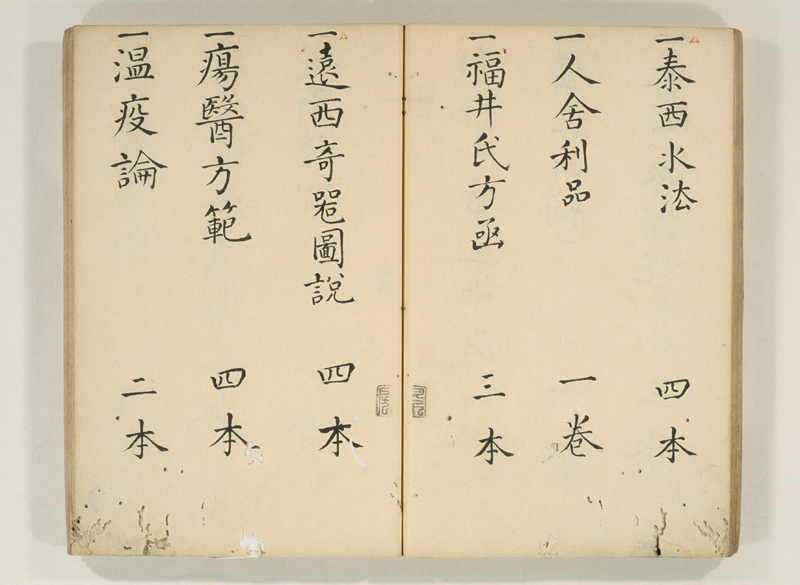 一泰西水法 四本
一人舍利品 一巻
一福井氏方函 三本
一遠西奇器圖説 四本
一瘍醫方範 四本
一温疫論 二本